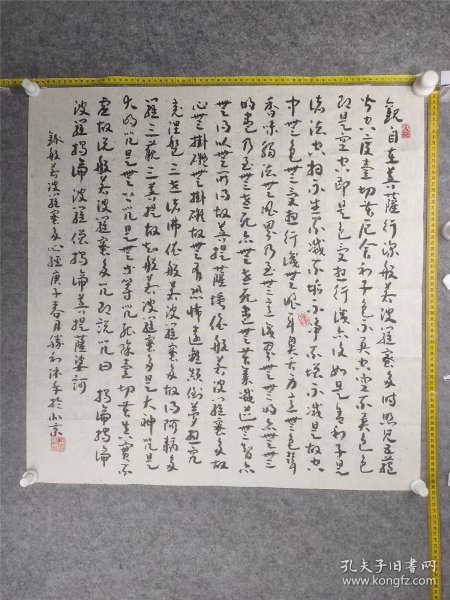 觀自在菩薩行深般若波羅蜜多時照見五蘊
皆空度一切苦厄舍利子色不異空空不異色色
即是空空即是色受想行識亦復如是舍利子是
諸法空相不生不滅不垢不淨不增不減是故空
中無色無受想行識無眼耳鼻舌身意無色聲
香味觸法無眼界乃至無意識界無無明亦無無
明盡乃至無老死亦無老死盡無苦集滅道無智亦
無得以無所得故菩提薩埵依般若波羅蜜多故
心無掛礙無掛礙故無有恐怖遠離顛倒夢想究
竟涅槃三世諸佛依般若波羅蜜多故得阿耨多
羅三藐三菩提故知般若波羅蜜多是大神咒是
大明咒是無上咒是無等等咒能除一切苦真實不
虛故說般若波羅蜜多咒即說咒曰 揭諦揭諦
波羅揭諦波羅僧揭諦菩提薩婆訶
錄般若波羅蜜多心經庚子春月勝利沐手於北京
孔夫子旧书网
www.kongfz.com